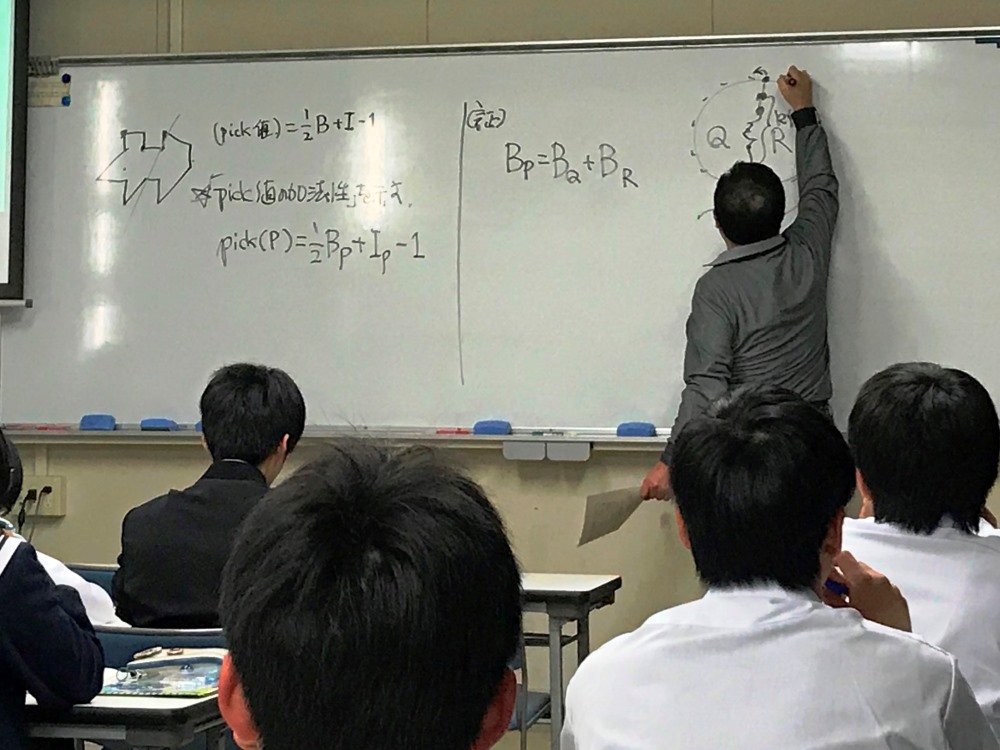 (pick値)=½B+I-1
☆pick値の加法性を示す.
pick(P)=½B_P+I_P-1
(証)
B_P=B_Q+B_R
Q
R